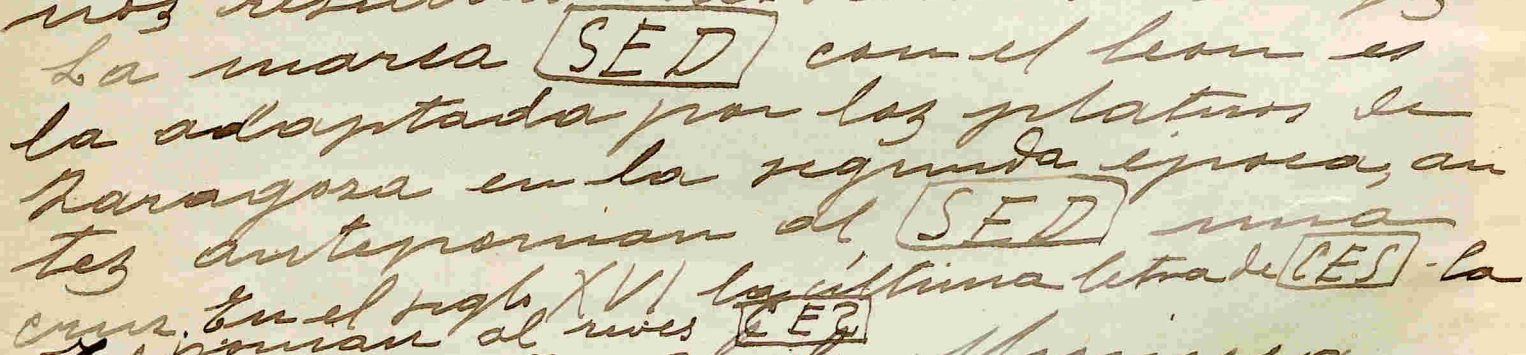 La marca SED con el leon es
la adaptada por loz plateros de
Zaragoza en la segunda época, an
tez anteponian al SED una
cruz. En el siglo XVI la última letra de CES - la
ponian al reves CES